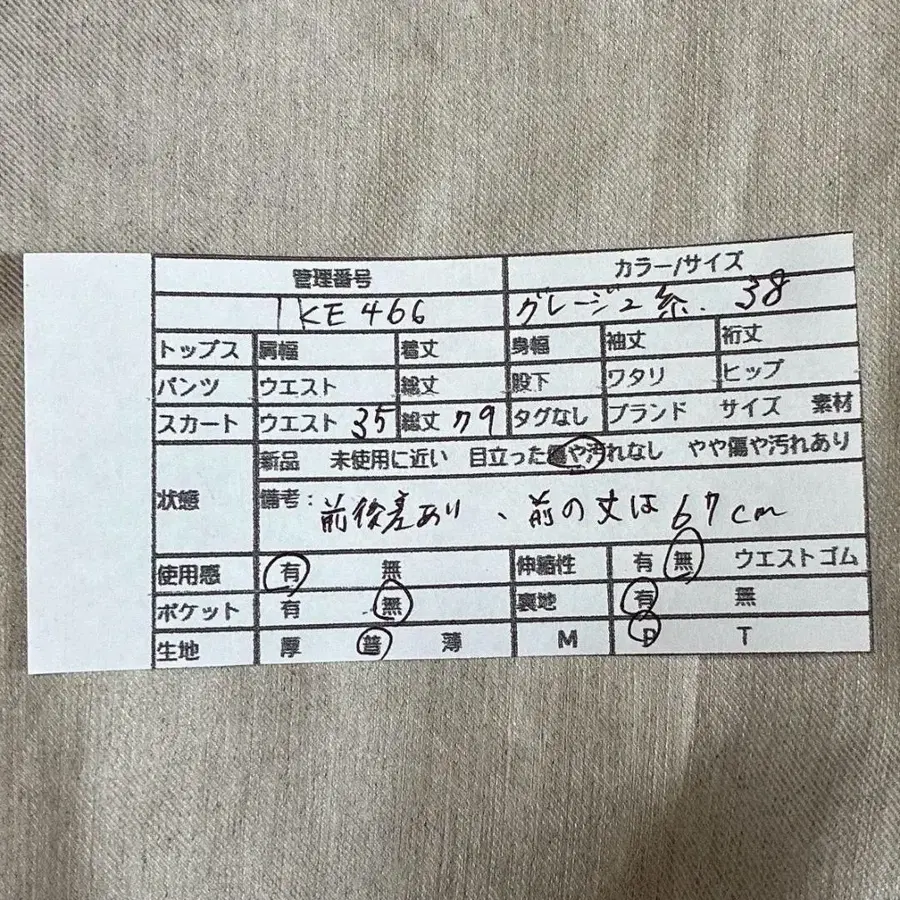 管理番号 カラー/サイズ
IKE466 グレージュ系. 38
トップス 肩幅 着丈 身幅 袖丈 裄丈
パンツ ウエスト 総丈 股下 ワタリ ヒップ
スカート ウエスト 35 総丈 79 タグなし ブランド サイズ 素材
状態 新品 未使用に近い 目立った傷や汚れなし やや傷や汚れあり
備考: 前後差あり、前の丈は67cm
使用感 有 無 伸縮性 有 無 ウエストゴム
ポケット 有 無 裏地 有 無
生地 厚 普 薄 M P T